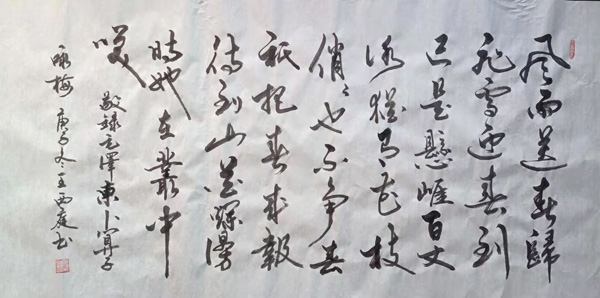 风雨送春歸
飛雪迎春到
已是懸崖百丈
冰猶有花枝
俏俏也不争春
祇把春來報
待到山花爛漫
時她在叢中
笑 敬録毛澤東卜算子
咏梅 庚子冬王西庭书